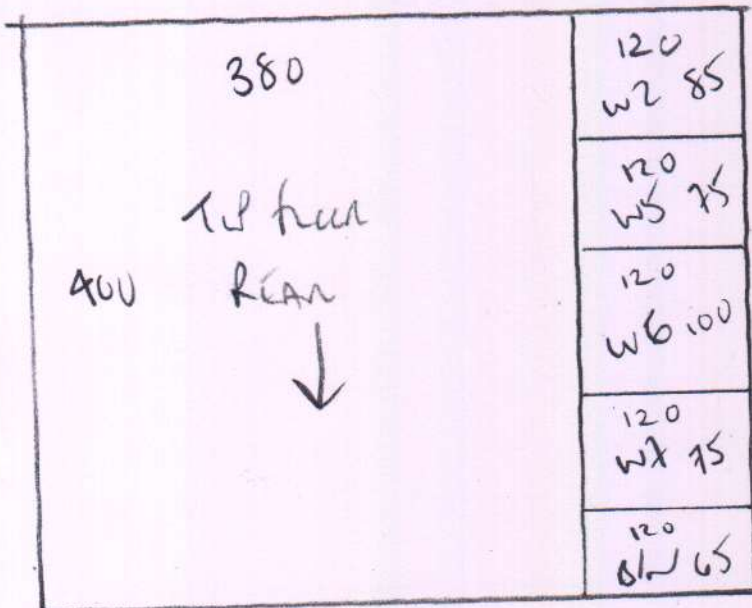 380
TOP FLOOR
400 REAR
120
W2 85
120
W5 75
120
W6 100
120
W7 75
120
65